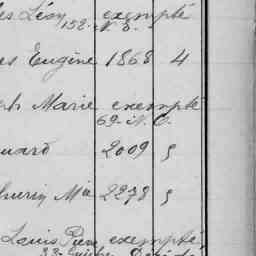 es Léon exempté
152. N. E.
es Eugène 1868 4
ph Marie exempté
69. N. C.
uard 2009 5
thurin Mie 2278 5
Louis Pierre exempté,